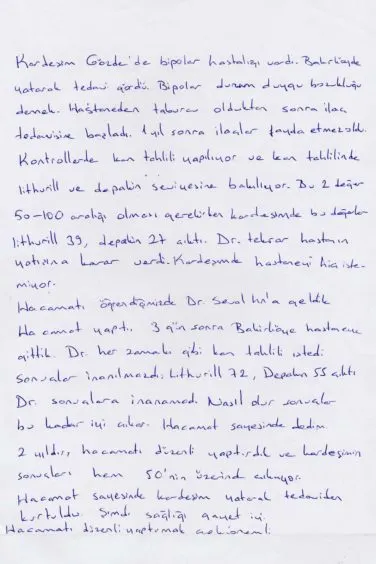 Kardeşim Gözde'de bipolar hastalığı vardı. Bakırköyde
yatarak tedavi gördü. Bipolar durum duygu bozukluğu
demek. Hastaneden taburcu olduktan sonra ilaç
tedavisine başladı. 1 yıl sonra ilaçlar fayda etmez oldu.
Kontrollerde kan tahlili yapılıyor ve kan tahlilinde
lithuril ve depakin seviyesine bakılıyor. Bu 2 değer
50-100 aralığı olması gerekirken kardeşimde bu değerler
lithuril 39, depakin 27 çıktı. Dr. tekrar hastanın
yatışına karar verdi. Kardeşimde hastaneyi hiç iste-
miyor.
Hacamatı öğrendiğimizde Dr. geldik
Hacamat yaptı. 3 gün sonra Bakırköye hastaneye
gittik. Dr. her zamanki gibi kan tahlili istedi.
Sonuçlar inanılmazdı. Lithuril 72, Depakin 55 çıktı
Dr. sonuçlara inanamadı. Nasıl olur sonuçlar
bu kadar iyi çıkar. Hacamat sayesinde dedim.
2 yıldır, hacamatı düzenli yaptırdık ve kardeşimin
sonuçları hem 50'nin üzerinde çıkıyor.
Hacamat sayesinde kardeşim yatarak tedaviden
kurtuldu. Şimdi sağlığı gayet iyi.
Hacamatı düzenli yaptırmak çok önemli.